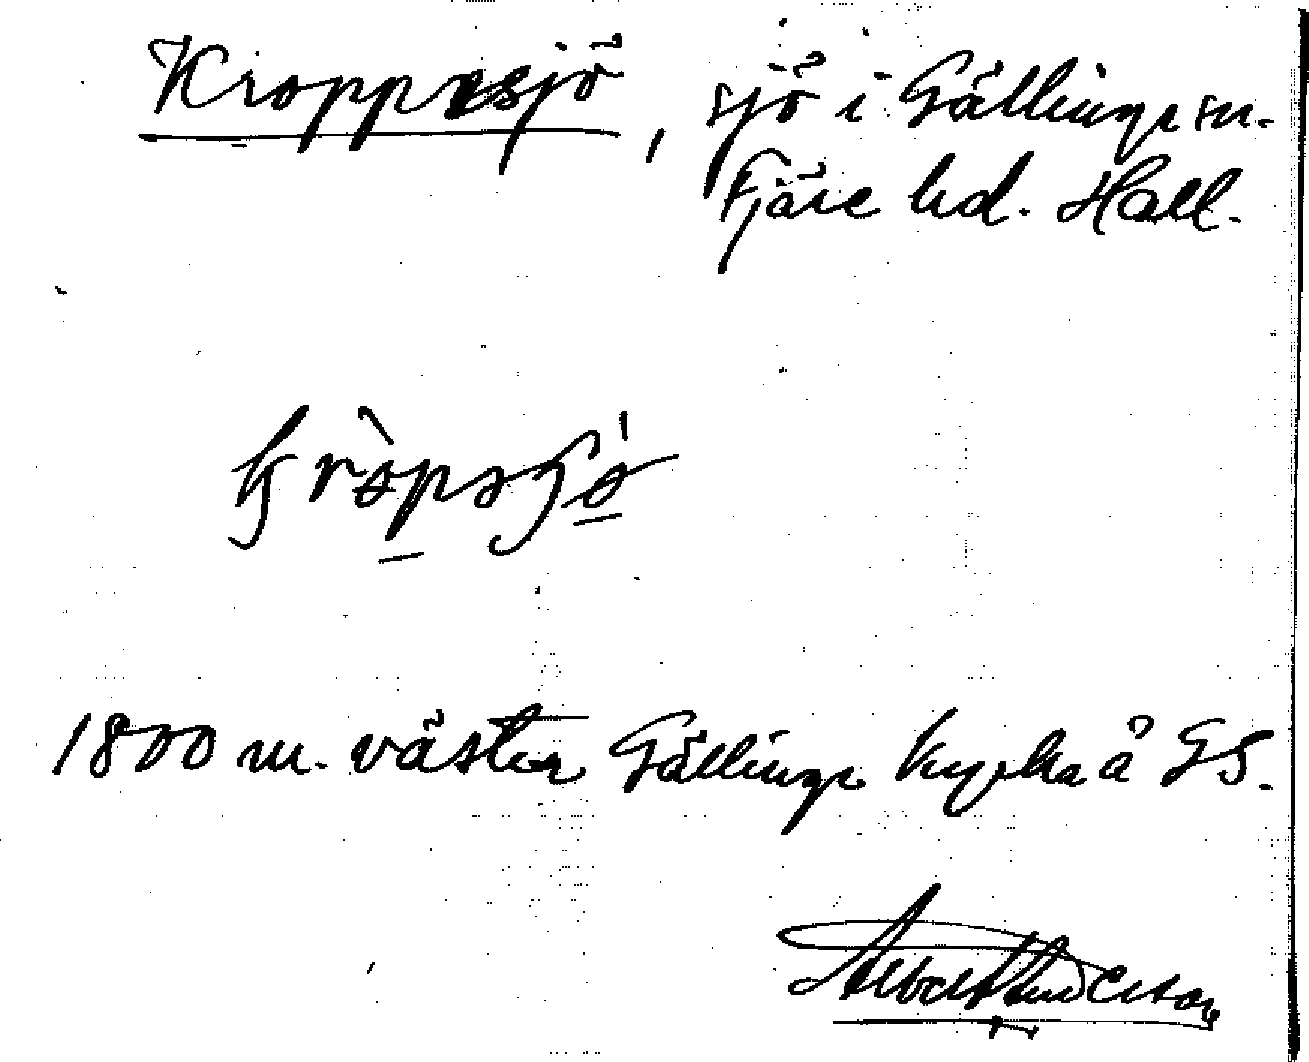 Kroppsjö, sjö i Gällinge sn.
Fjäre hd. Hall.
1800 m. väster Gällinge kyrka å GS.
Albert Andersson